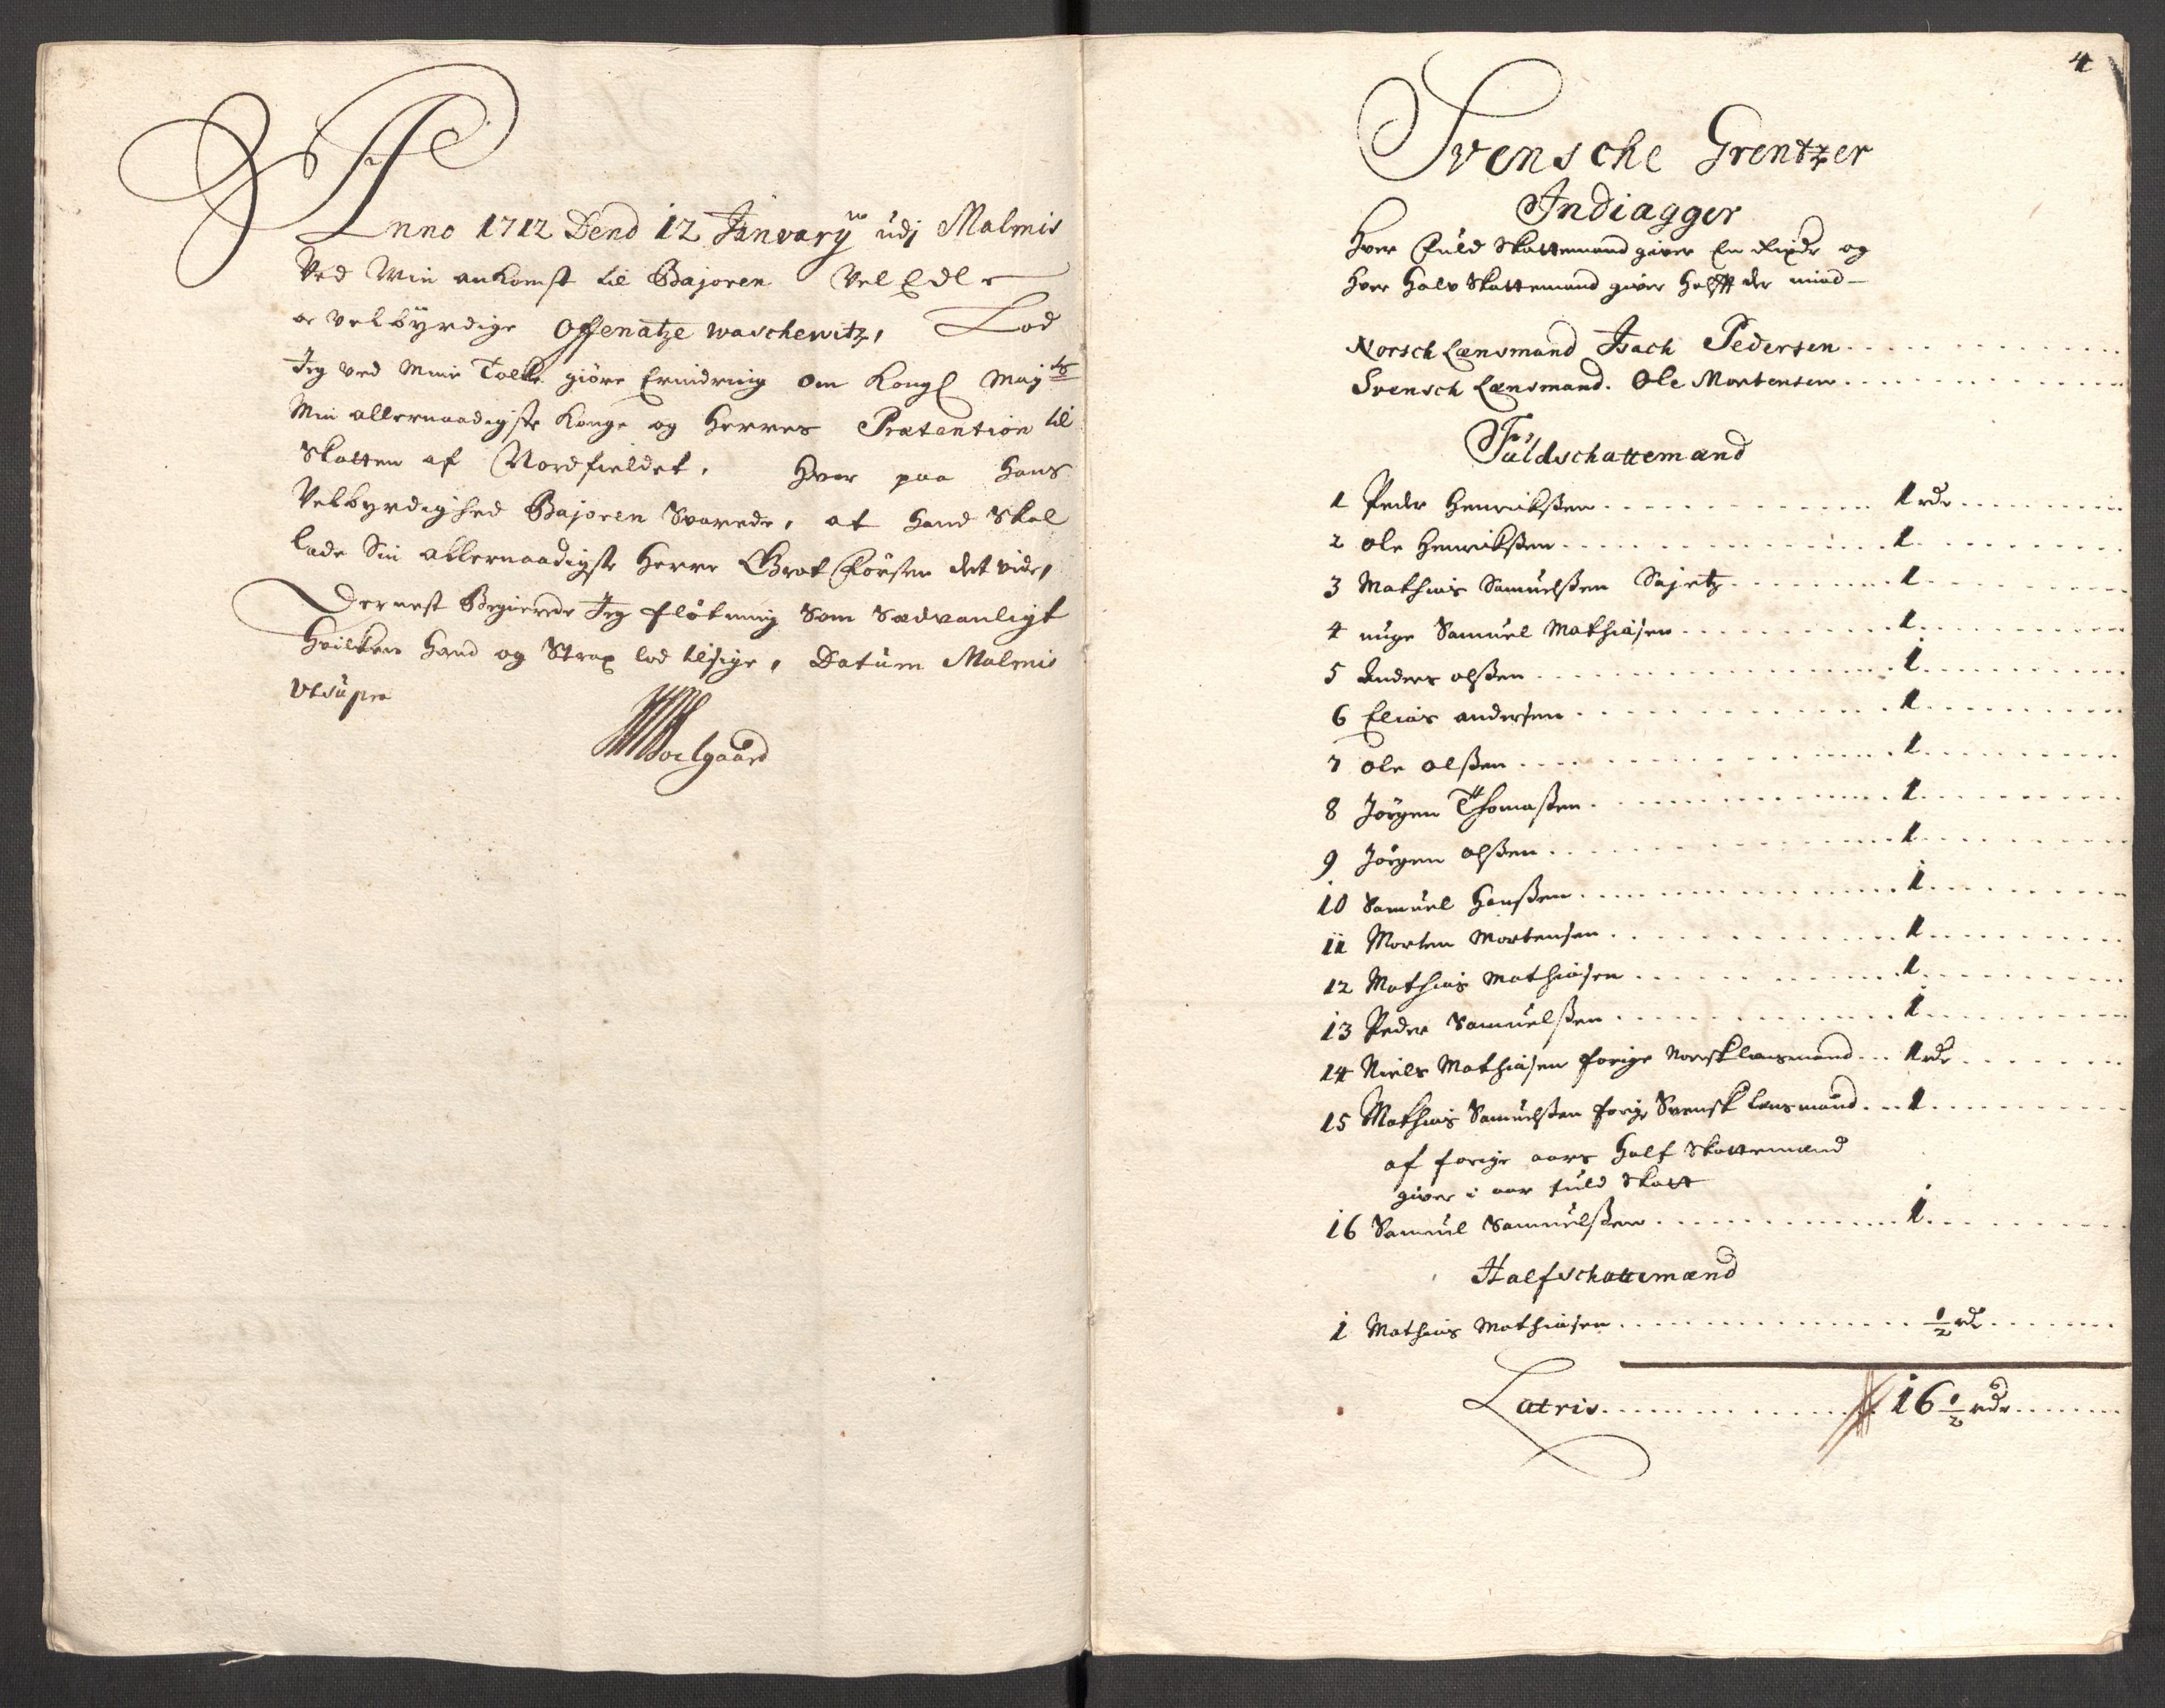 Anno 1712 Dend 12 January udj Malmis
Ved Min ankomst til Bajoren Vel Edle
oc velbyrdige Offenatze waschewitz, Lod
Jeg ved Min Tolk giöre Erindring om Kongl Maytz
Min allernaadigste Konge og Herres Prætention til
Skatten af Nordfieldet. Hvor paa Hans
Velbyrdighed Bajoren Svarede, at Hand Skal
lade Sin allernaadigste Herre Grot Försten det vide,
Dernest Begierede Jeg flötning Som Sædvanligt
Hvilken Hand og Strax lod tilsige, Datum Malmis
Utsupra
Soelgaard
4
Svensche Grentzer
Indiagger
Hver Fuld Skattemand giver En Rixdr og
Hver Halv Skattemand giver Helfft der mind
Norsch Lænsmand Isach Pedersen
Svensch Lænsmand. Ole Mortensen
Fuldschattemænd
1 Peder Henrichsen 1 rdr
2 Ole Henrichsen 1
3 Mathias Samuelssen Sajetz 1
4 unge Samuel Mathiasen 1
5 Anders olssen 1
6 Elias andersen 1
7 Ole olssen 1
8 Jörgen Thomassen 1
9 Jörgen olssen 1
10 Samuel Hanssen 1
11 Morten Mortensen 1
12 Mathias Mathiasen 1
13 Peder Samuelssen 1
14 Niels Mathiasen forige Norsk lænsmand 1 rdr
15 Mathias Samuelssen forige Svensk lensmand 1
af forige aars Half Skattemænd
giver i aar fuld Skatt
16 Samuel Samuelssen 1
Halfschattemænd
1 Mathias Mathiasen ½ rdr
Latris 16 ½ rdr